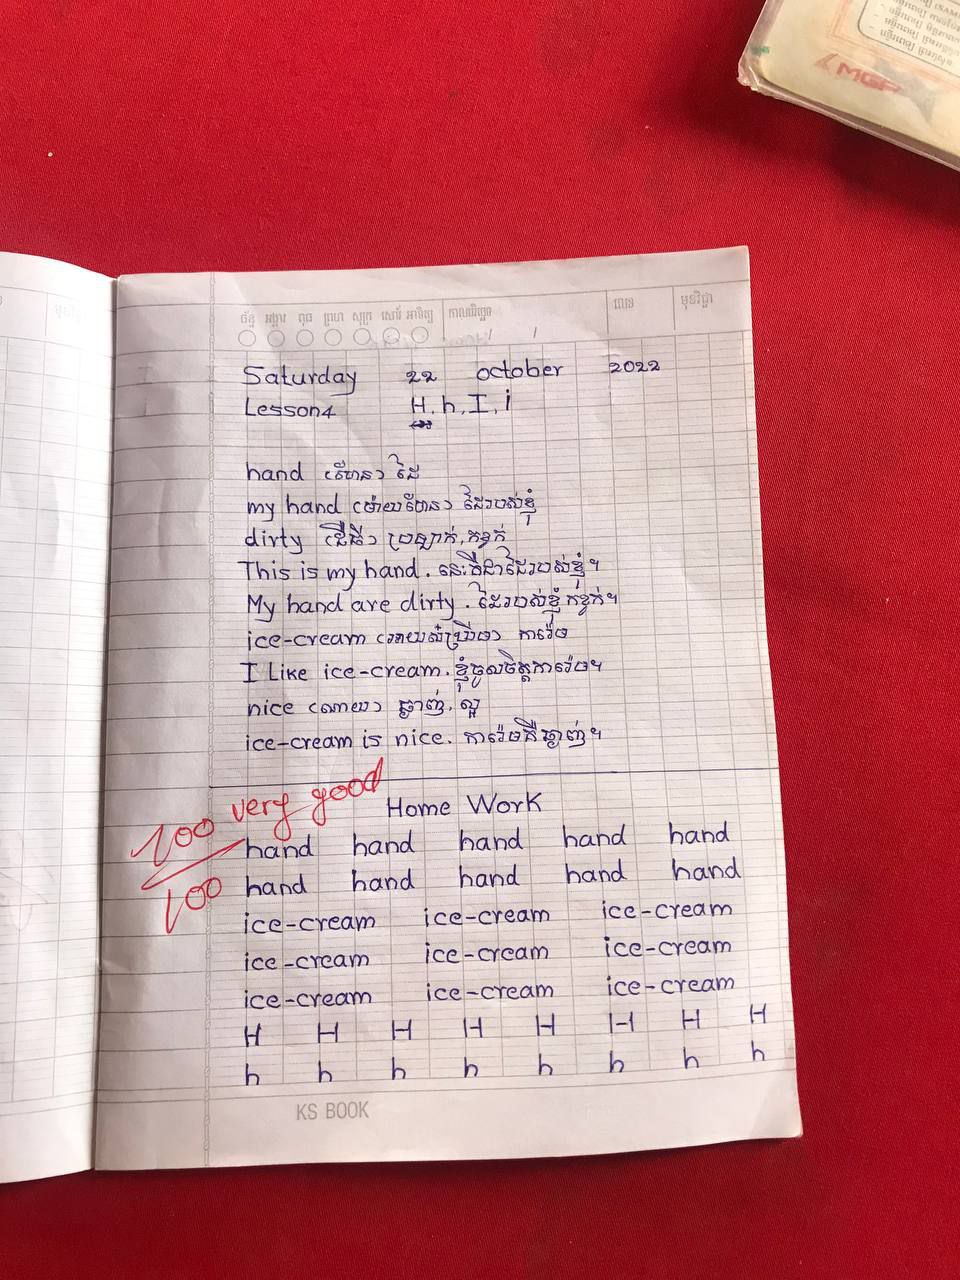 MGP
ច័ន្ទ អង្គារ ពុធ ព្រហ សុក្រ សៅរ៍ អាទិត្យ កាលបរិច្ឆេទ លេខ មុខវិជ្ជា
/ /
Saturday 22 october 2022
Lesson4 H, h, I, i
hand (ហែន) ដៃ
my hand (ម៉ាយហែន) ដៃរបស់ខ្ញុំ
dirty (ឌើធី) ប្រឡាក់, កខ្វក់
This is my hand. នេះគឺជាដៃរបស់ខ្ញុំ។
My hand are dirty. ដៃរបស់ខ្ញុំកខ្វក់។
ice-cream (អាយស៍ឃ្រីម) ការ៉េម
I Like ice-cream. ខ្ញុំចូលចិត្តការ៉េម។
nice (ណាយ) ឆ្ងាញ់, ល្អ
ice-cream is nice. ការ៉េមគឺឆ្ងាញ់។
100 very good
100
Home Work
hand hand hand hand hand
hand hand hand hand hand
ice-cream ice-cream ice-cream
ice-cream ice-cream ice-cream
ice-cream ice-cream ice-cream
H H H H H H H H
h h h h h h h h
KS BOOK